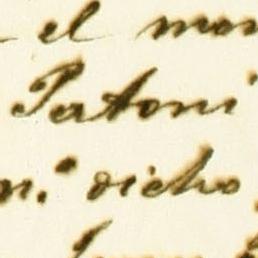 el mon
Patoni
n. dicho